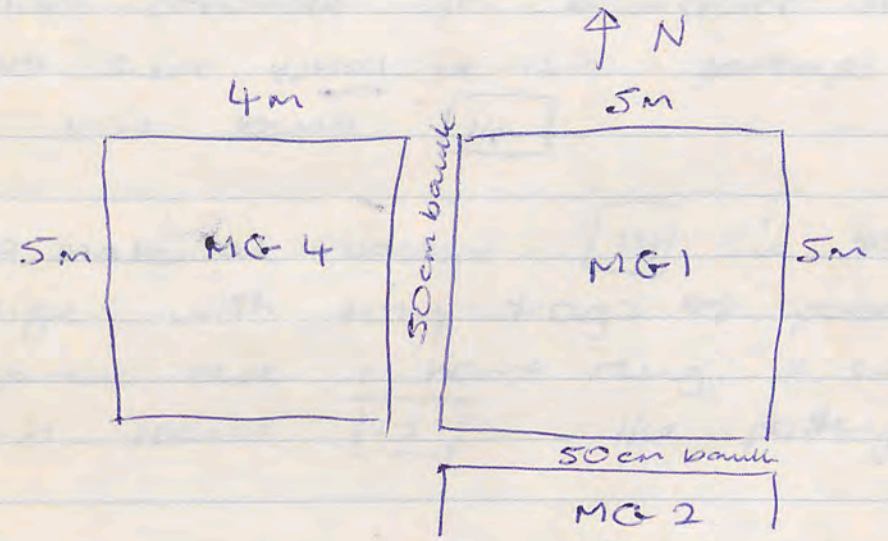 N
4m
5m
5m
MG 4
50cm baulk
MG1
5m
50cm baulk
MG 2